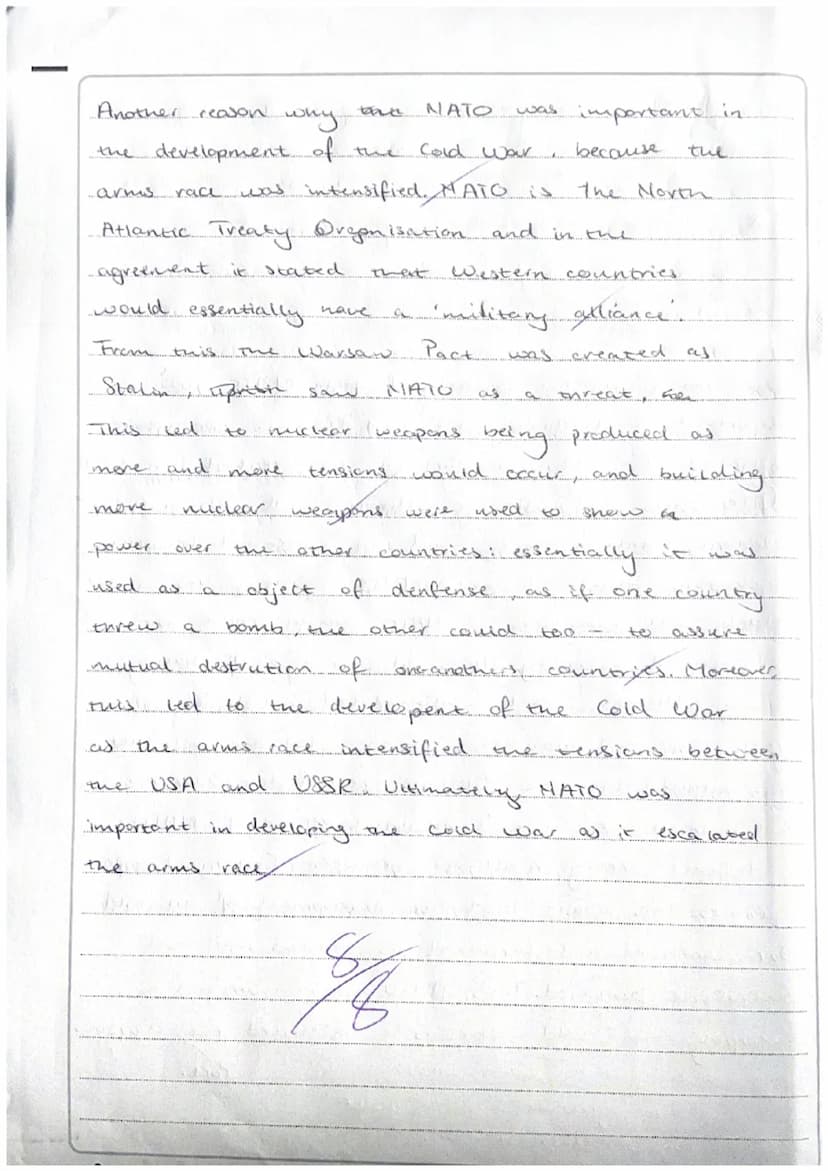 Another reason why NATO was important in
the development of the Cold War, because the
arms race was intensified. NATO is the North
Atlantic Treaty Organisation and in the
agreement it stated that Western countries
would essentially have a 'military alliance'.
From this the Warsaw Pact was created as
Stalin, saw NATO as a threat,
This led to nuclear weapons being produced as
more and more tensions would occur, and building
more nuclear weapons were used to show a
power over the other countries: essentially it was
used as a object of denfense, as if one country
threw a bomb, the other could too - to assure
mutual destrution of one-anothers countries. Moreover,
this led to the develepent of the Cold War
as the arms race intensified the tensions between
the USA and USSR. Ultimately, NATO was
important in developing the cold war as it escalated
the arms race
8/8